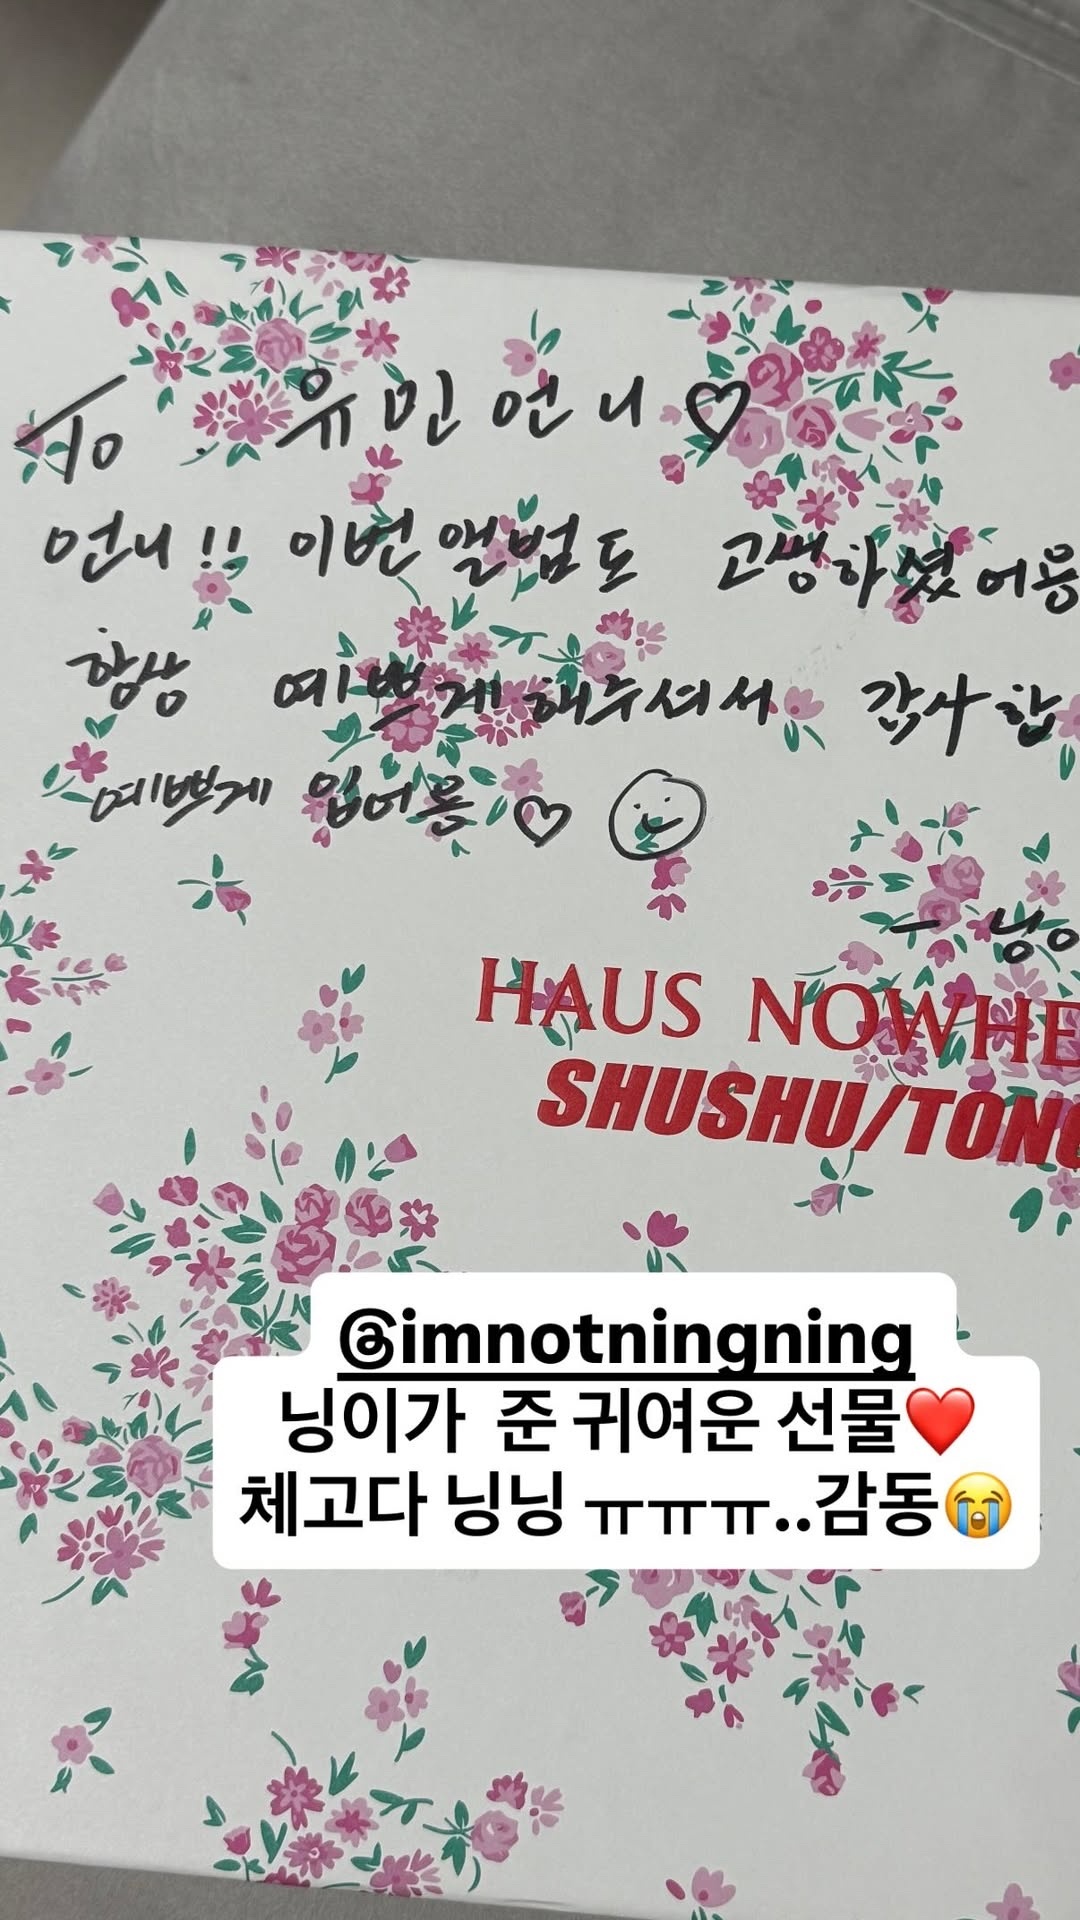 To. 유민언니♡
언니!! 이번앨범도 고생하셨어용
항상 예쁘게해주셔서 감사합
예쁘게 입어용♡
- 닝이
HAUS NOWHE
SHUSHU/TONG
@imnotningning
닝이가 준 귀여운 선물❤️
체고다 닝닝 ㅠㅠㅠ..감동😭